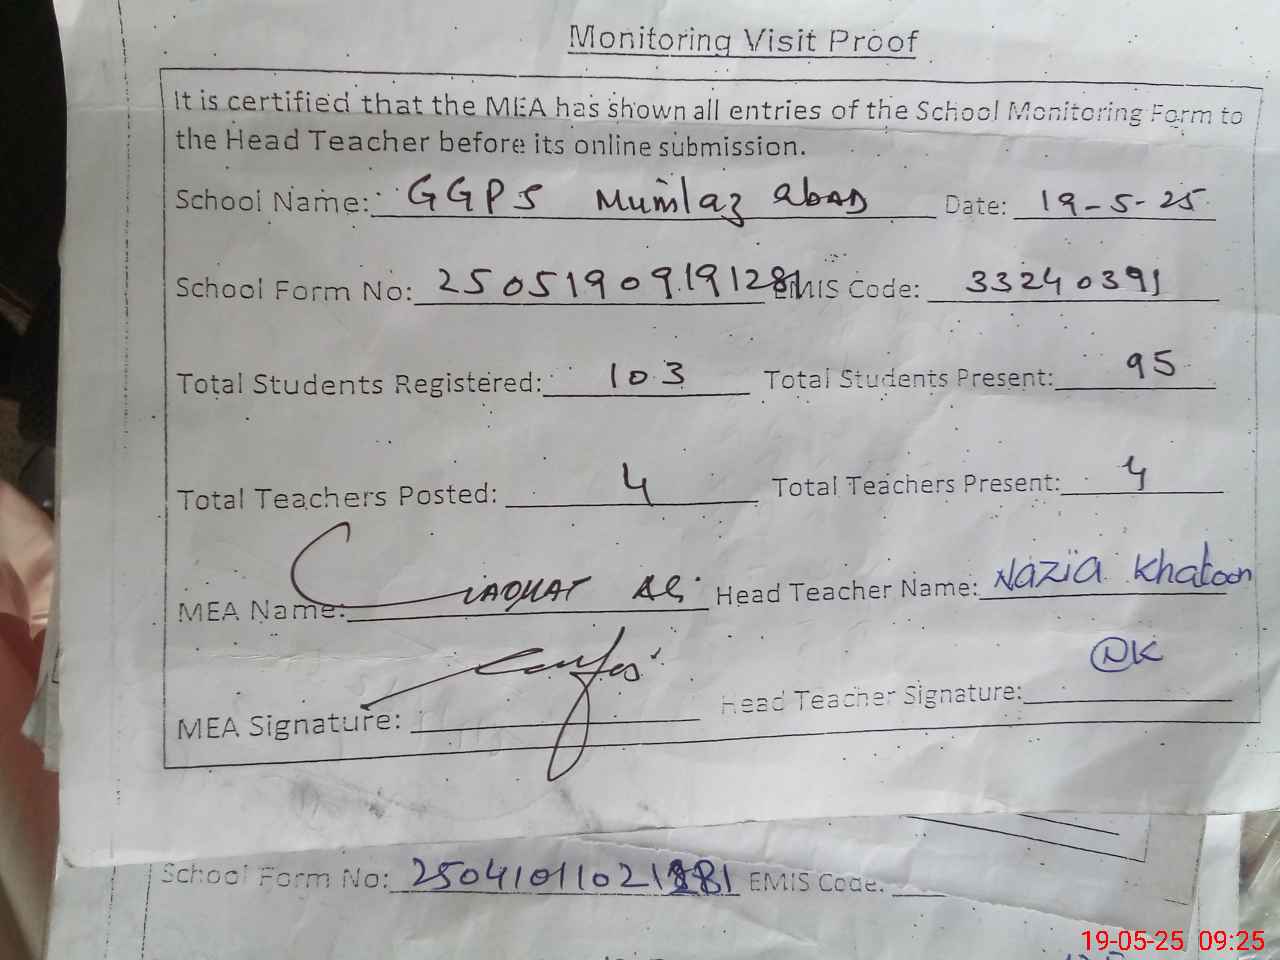 Monitoring Visit Proof
It is certified that the MEA has shown all entries of the School Monitoring Form to
the Head Teacher before its online submission.
School Name: GGPS Mumtaz abAD Date: 19-5-25
School Form No: 250519091912881 EMIS Code: 33240391
Total Students Registered: 103 Total Students Present: 95
Total Teachers Posted: 4 Total Teachers Present: 4
MEA Name: LIAQUAT Ali Head Teacher Name: Nazia Khatoon
MEA Signature: Head Teacher Signature: NK
School Form No: EMIS Code.
19-05-25 09:25